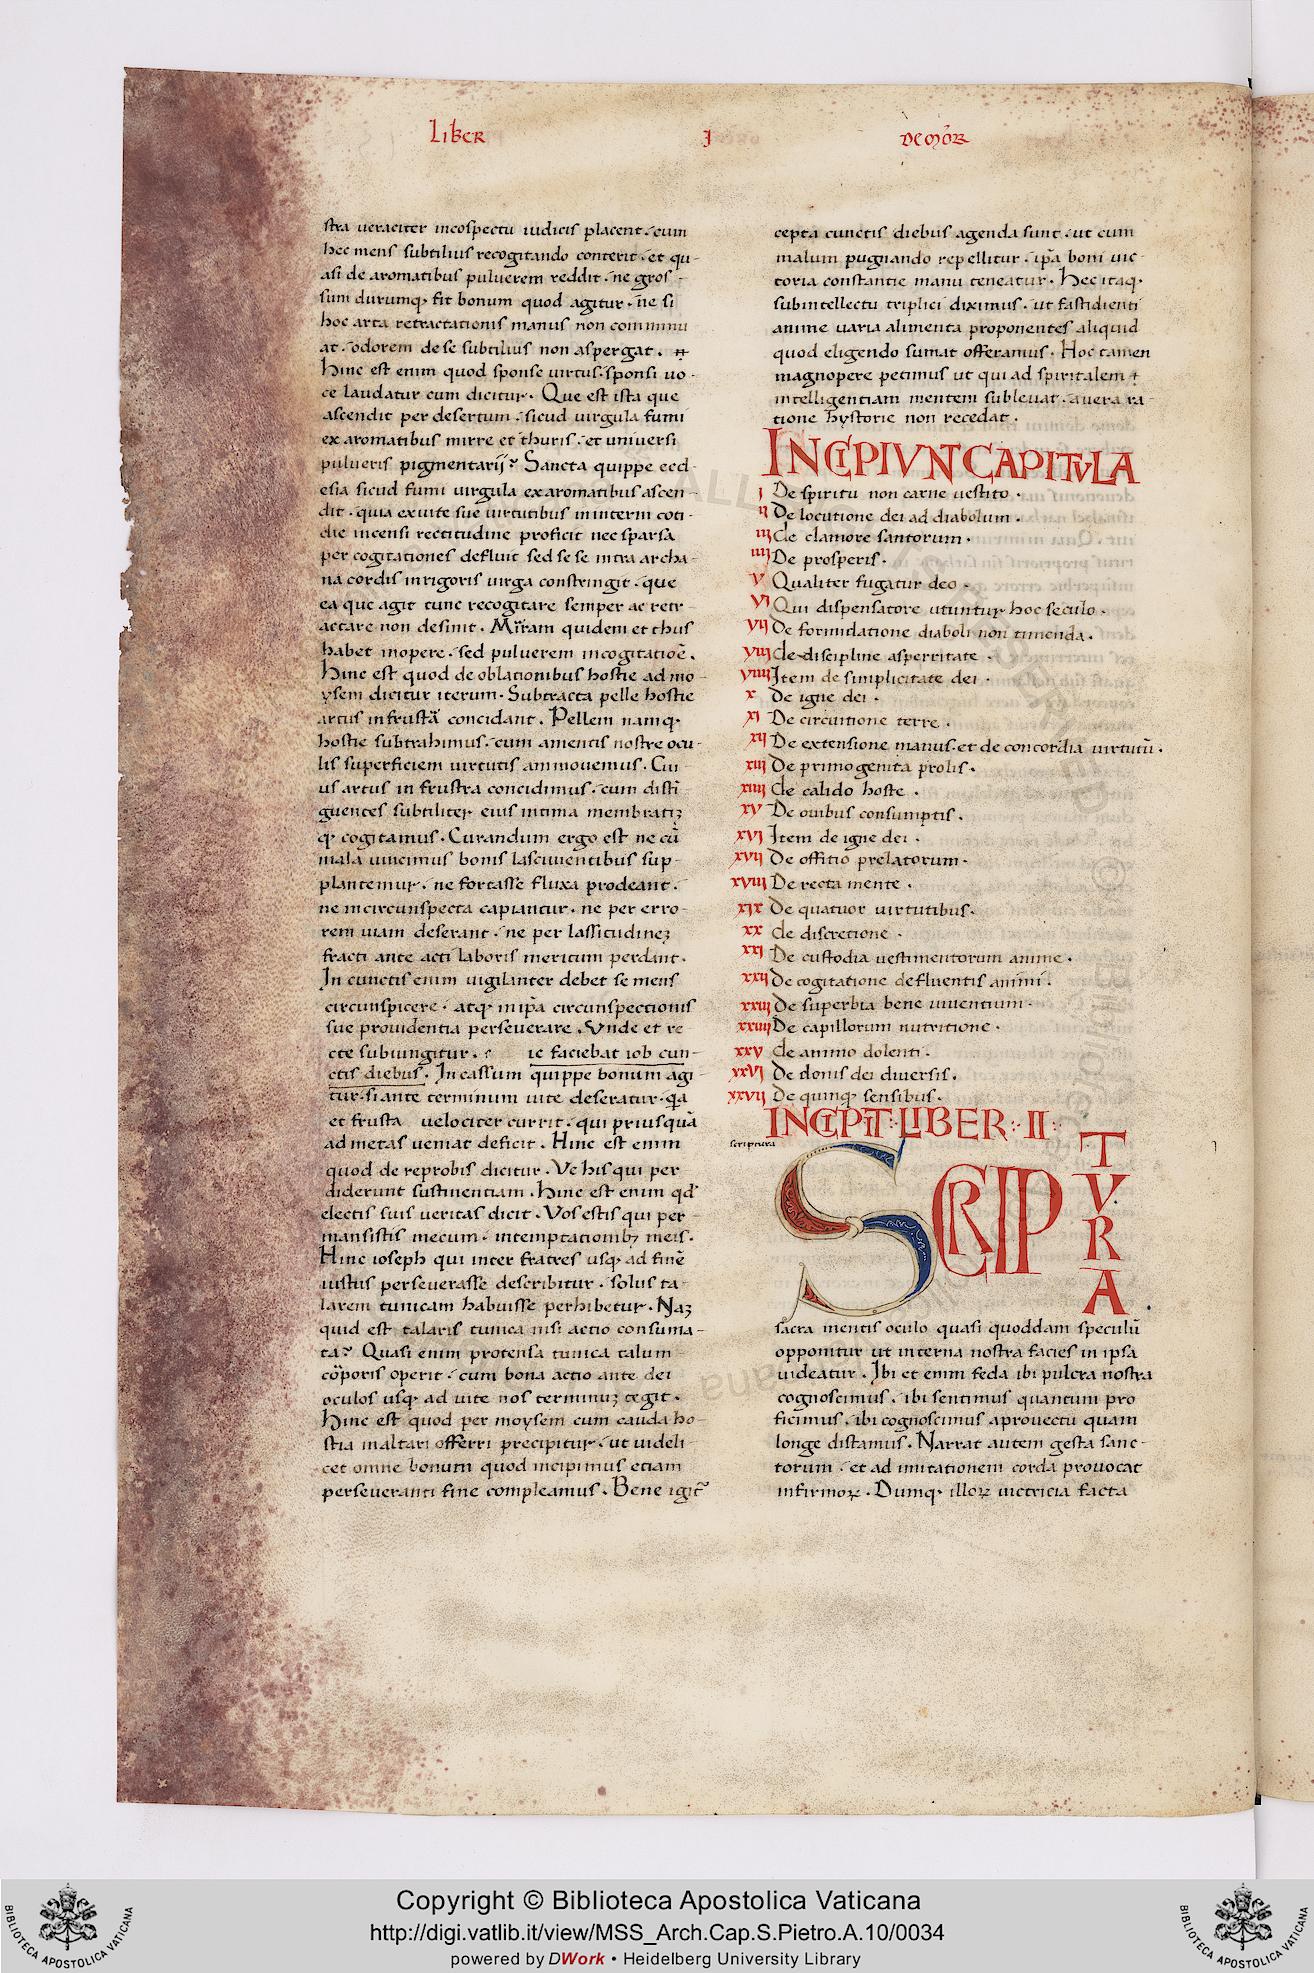 Liber I De mor̄
stra ueraciter in cospectu iudicis placent. cum
hec mens subtilius recogitando conterit. et qu-
asi de aromatibus puluerem reddit. ne gros-
sum durumq; sit bonum quod agitur. ne si
hoc arta retractationis manus non comminu
at. odorem de se subtilius non aspergat.
Hinc est enim quod sponse uirtus. sponsi uo-
ce laudatur cum dicitur. Que est ista que
ascendit per desertum. sicud uirgula fumi
ex aromatibus mirre et thuris. et uniuersi
pulueris pigmentarij? Sancta quippe eccl-
esia sicud fumi uirgula ex aromatibus ascen-
dit. quia ex uite sue uirtutibus in interni coti-
die incensi rectitudine proficit nec sparsa
per cogitationes defluit sed se se intra archa-
na cordis in rigoris uirga constringit. que
ea que agit tunc recogitare semper ac retr-
actare non desinit. Mirram quidem et thus
habet in opere. sed puluerem in cogitatioē.
Hinc est quod de oblationibus hostie ad mo-
ysem dicitur iterum. Subtracta pelle hostie
artus in frusta concidant. Pellem namq;
hostie subtrahimus. cum a mentis nostre ocu-
lis superficiem uirtutis ammouemus. Cui-
us artus in frustra concidimus. cum disti
guentes subtiliter eius intima membratiꝫ
q; cogitamus. Curandum ergo est ne cū
mala uincimus bonis lasciuientibus sup-
plantemur. ne fortasse fluxa prodeant.
ne incircunspecta capiantur. ne per erro-
rem uiam deserant. ne per lassitudineꝫ
fracti ante acti laboris meritum perdant.
In cunctis enim uigilanter debet se mens
circunspicere. atq; in ip̄a circunspectionis
sue prouidentia perseuerare. Vnde et re
cte subiungitur. ic faciebat iob cun-
ctis diebus. In cassum quippe bonum agi-
tur. si ante terminum uite deseratur. q̄a
et frusta uelociter currit. qui priusquā
ad metas ueniat deficit. Hinc est enim
quod de reprobis dicitur. Ve his qui per
diderunt sustinentiam. Hinc est enim qd̄
electis suis ueritas dicit. Vos estis qui per-
mansistis mecum. in temptationibꝫ meis.
Hinc ioseph qui inter fratres usq; ad finē
iustus perseuerasse describitur. solus ta-
larem tunicam habuisse perhibetur. Naꝫ
quid est talaris tunica nisi actio consuma-
ta? Quasi enim protensa tunica talum
corporis operit. cum bona actio ante dei
oculos usq; ad uite nos terminuꝫ tegit.
Hinc est quod per moysem cum cauda ho-
stia in altari offerri precipitur. ut uideli-
cet omne bonum quod incipimus etiam
perseueranti fine compleamus. Bene igit̄
cepta cunctis diebus agenda sunt. ut cum
malum pugnando repellitur. ip̄a boni uic-
toria constantie manu teneatur. Hec itaq;
sub intellectu triplici diximus. ut fastidienti
anime uaria alimenta proponentes aliquid
quod eligendo sumat offeramus. Hoc tamen
magnopere petimus ut qui ad spiritalem
intelligentiam mentem subleuat. a uera ra-
tione hystorie non recedat.
INCIPIVNT CAPITVLA
i De spiritu non carne uestito.
ii De locutione dei ad diabolum.
iii De clamore santorum.
iiii De prosperis.
v Qualiter fugatur deo.
vi Qui dispensatore utuntur hoc seculo.
vii De formidatione diaboli non timenda.
viii De discipline asperritate.
viiii Item de simplicitate dei.
x De igne dei.
xi De circuitione terre.
xii De extensione manus. et de concordia uirtutū.
xiii De primogenita prolis.
xiiii De calido hoste.
xv De ouibus consumptis.
xvi Item de igne dei.
xvii De offitio prelatorum.
xviii De recta mente.
xix De quatuor uirtutibus.
xx De discretione.
xxi De custodia uestimentorum anime.
xxii De cogitatione defluentis animi.
xxiii De superbia bene uiuentium.
xxiiii De capillorum nutritione.
xxv De animo dolenti.
xxvi De donis dei diuersis.
xxvii De quinq; sensibus.
INCIPIT LIBER II
scriptura
SCRIPTVRA
sacra mentis oculo quasi quoddam speculū
opponitur ut interna nostra facies in ipsa
uideatur. Ibi et enim feda ibi pulcra nostra
cognoscimus. ibi sentimus quantum pro
ficimus. ibi cognoscimus a prouectu quam
longe distamus. Narrat autem gesta sanc-
torum. et ad imitationem corda prouocat
infirmoꝝ. Dumq; illoꝝ uictricia facta
Copyright © Biblioteca Apostolica Vaticana
http://digi.vatlib.it/view/MSS_Arch.Cap.S.Pietro.A.10/0034
powered by DWork • Heidelberg University Library
BIBLIOTECA APOSTOLICA VATICANA
BIBLIOTECA APOSTOLICA VATICANA